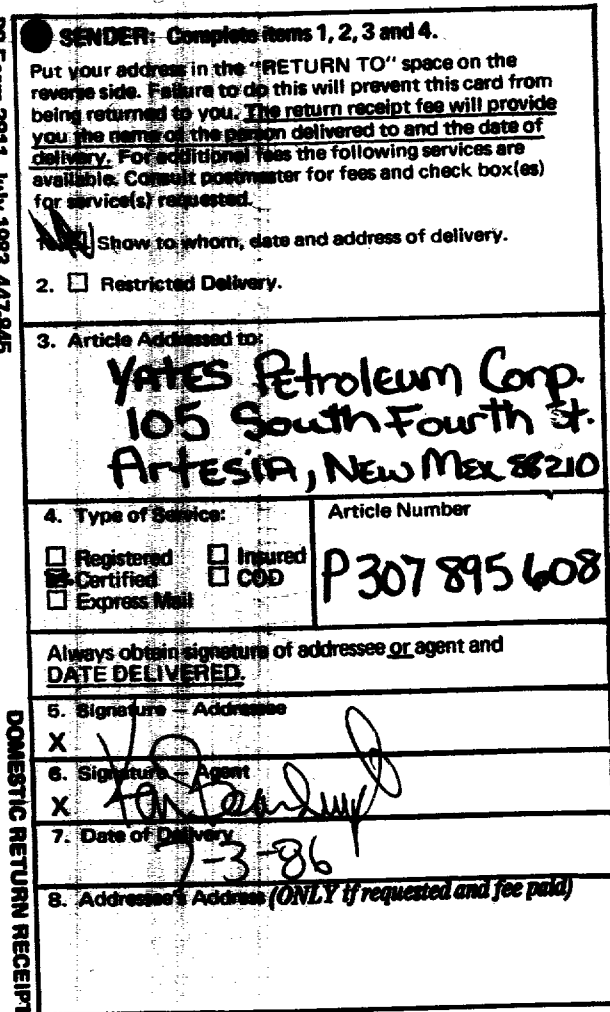 SENDER: Complete items 1, 2, 3 and 4.
Put your address in the "RETURN TO" space on the
reverse side. Failure to do this will prevent this card from
being returned to you. The return receipt fee will provide
you the name of the person delivered to and the date of
delivery. For additional fees the following services are
available. Consult postmaster for fees and check box(es)
for service(s) requested.
Show to whom, date and address of delivery.
2. ☐ Restricted Delivery.
3. Article Addressed to:
YATES PEtroleum Corp.
105 South Fourth St.
ArtESIA, NEW MEX 88210
4. Type of Service:
☐ Registered ☐ Insured
☒ Certified ☐ COD
☐ Express Mail
Article Number
P 307 895 608
Always obtain signature of addressee or agent and
DATE DELIVERED.
5. Signature – Addressee
X
6. Signature – Agent
X
7. Date of Delivery
7-3-86
8. Addressee's Address (ONLY if requested and fee paid)
PS Form 3811, July 1983 447-845
DOMESTIC RETURN RECEIPT